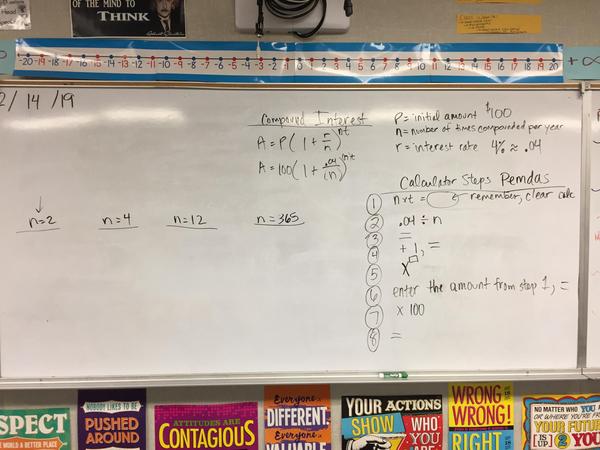 OF THE MIND TO
THINK
-20 -19 -18 -17 -16 -15 -14 -13 -12 -11 -10 -9 -8 -7 -6 -5 -4 -3 -2 -1 0 1 2 3 4 5 6 7 8 9 10 11 12 13 14 15 16 17 18 19 20
+∞
2/14/19
Compound Interest
A = P(1 + r/n)^nt
A = 100(1 + .04/(n))^(n·t
P = initial amount $100
n = number of times compounded per year
r = interest rate 4% ≈ .04
n=2
n=4
n=12
n=365
Calculator Steps Pemdas
① n x t = remember, clear calc
② .04 ÷ n
③ =
④ + 1, =
⑤ x□
⑥ enter the amount from step 1, =
⑦ x 100
⑧ =
SPECT
THE WORLD A BETTER PLACE
NOBODY LIKES TO BE
PUSHED
AROUND
ATTITUDES ARE
CONTAGIOUS
Everyone is
DIFFERENT.
Everyone is
VALUABLE
YOUR ACTIONS
SHOW WHO
YOU
ARE
WRONG IS
WRONG!
RIGHT
NO MATTER WHO YOU
OR WHERE YOU'RE
YOUR FUTURE
[IS UP] 2 YOU